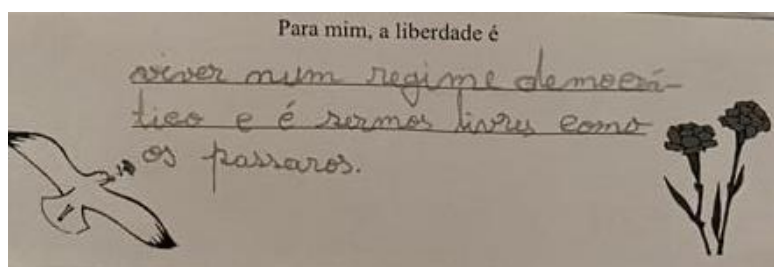 Para mim, a liberdade é
viver num regime democrá-
tico e é sermos livres como
os passaros.